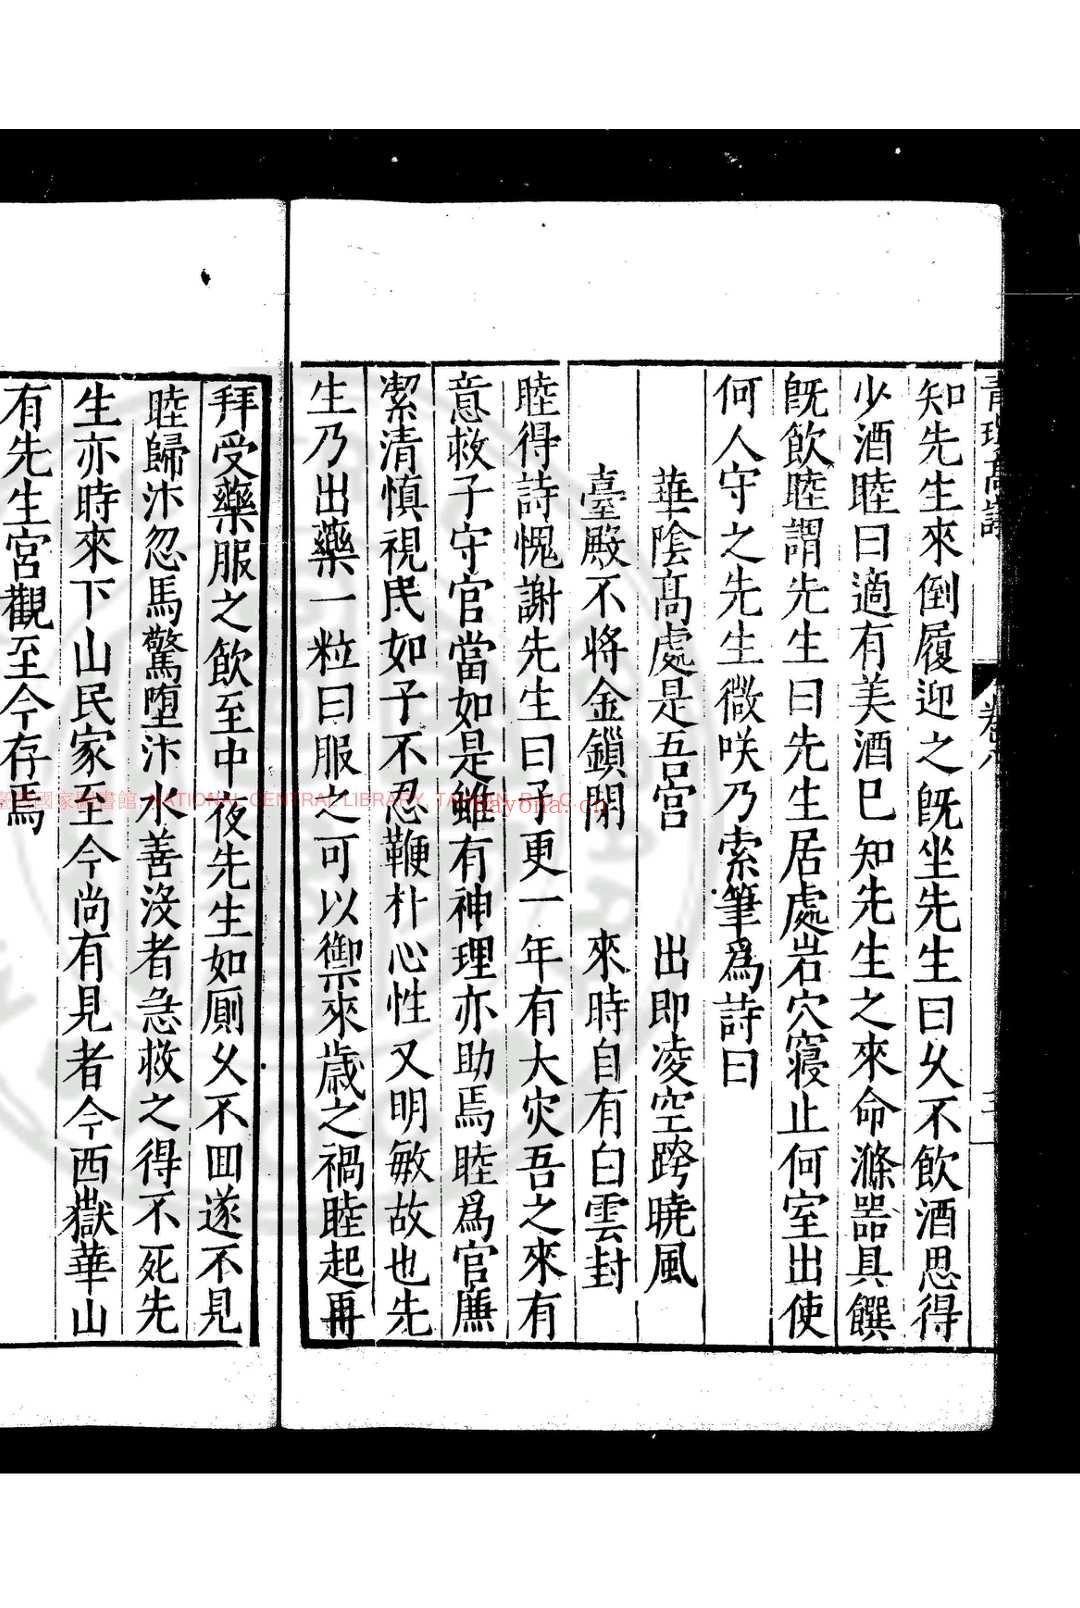 知先生來倒履迎之旣坐先生曰乆不飲酒思得
少酒睦曰適有美酒巳知先生之來命滌器具饌
旣飲睦謂先生曰先生居處岩穴寢止何室出使
何人守之先生微咲乃索筆爲詩曰
華陰高處是吾宫 出即凌空跨曉風
臺殿不將金鎖閉 來時自有白雲封
睦得詩愧謝先生曰子更一年有大灾吾之來有
意救子守官當如是雖有神理亦助焉睦爲官廉
潔清慎視民如子不忍鞭朴心性又明敏故也先
生乃出藥一粒曰服之可以禦來歳之禍睦起再
拜受藥服之飲至中夜先生如厠乆不囬遂不見
睦歸汴忽馬驚墮汴水善没者急救之得不死先
生亦時來下山民家至今尚有見者今西嶽華山
有先生宮觀至今存焉
NATIONAL CENTRAL LIBRARY, TAIWAN, R.O.C.
nayona.cn